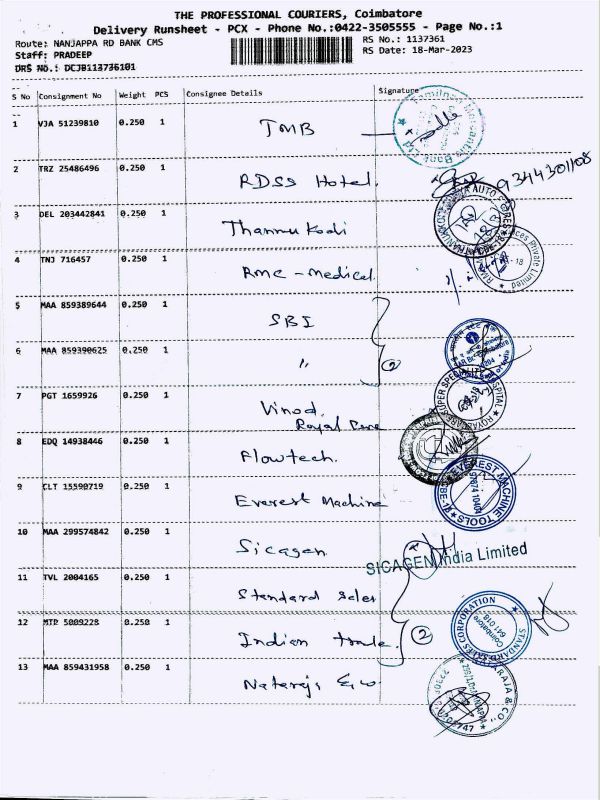 THE PROFESSIONAL COURIERS, Coimbatore
Delivery Runsheet - PCX - Phone No.:0422-3505555 - Page No.:1
Route: NANJAPPA RD BANK CMS RS No.: 1137361
Staff: PRADEEP RS Date: 18-Mar-2023
DRS No.: DCJB113736101
S No Consignment No Weight PCS Consignee Details Signature
1 VJA 51239810 0.250 1 TMB
2 TRZ 25486496 0.250 1 RDSS Hotel. 9344301108
3 DEL 203442841 0.250 1 Thannu Kodi
4 TNJ 716457 0.250 1 RMC - Medical.
5 MAA 859389644 0.250 1 SBI
6 MAA 859390625 0.250 1 " 2
7 PGT 1659926 0.250 1 Vinod.
Royal Care
8 EDQ 14938446 0.250 1 Flowtech.
9 CLT 15590719 0.250 1 Everest Machine
EVEREST MACHINE TOOLS
10 MAA 299574842 0.250 1 Sicagen
SICAGEN India Limited
11 TVL 2004165 0.250 1 Standard Sales
12 MTP 5009228 0.250 1 Indian trade. 2
STANDARD SALES CORPORATION
Coimbatore
641 018
13 MAA 859431958 0.250 1 Nataraj & co